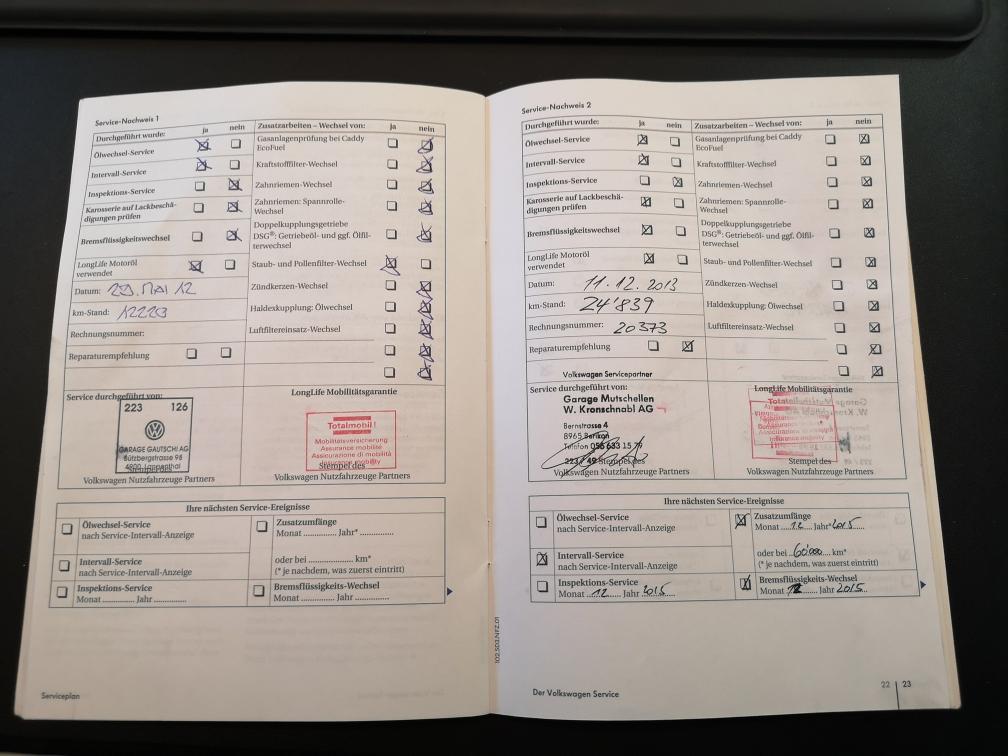 Service-Nachweis 1
Durchgeführt wurde: ja nein
Ölwechsel-Service
Intervall-Service
Inspektions-Service
Karosserie auf Lackbeschä-
digungen prüfen
Bremsflüssigkeitswechsel
LongLife Motoröl
verwendet
Datum: 29. MAI 12
km-Stand: 12223
Rechnungsnummer:
Reparaturempfehlung
Zusatzarbeiten – Wechsel von: ja nein
Gasanlagenprüfung bei Caddy
EcoFuel
Kraftstofffilter-Wechsel
Zahnriemen-Wechsel
Zahnriemen: Spannrolle-
Wechsel
Doppelkupplungsgetriebe
DSG®: Getriebeöl- und ggf. Ölfil-
terwechsel
Staub- und Pollenfilter-Wechsel
Zündkerzen-Wechsel
Haldexkupplung: Ölwechsel
Luftfiltereinsatz-Wechsel
Service durchgeführt von:
223 126
GARAGE GAUTSCHI AG
Bützbergstrasse 98
4900 Langenthal
Volkswagen Nutzfahrzeuge Partners
LongLife Mobilitätsgarantie
Totalmobil!
Mobilitätsversicherung
Assurance mobilité
Assicurazione di mobilità
Assurance mobility
Stempel des
Volkswagen Nutzfahrzeuge Partners
Ihre nächsten Service-Ereignisse
Ölwechsel-Service
nach Service-Intervall-Anzeige
Intervall-Service
nach Service-Intervall-Anzeige
Inspektions-Service
Monat ............ Jahr ............
Zusatzumfänge
Monat ............ Jahr* ............
oder bei ............ km*
(* je nachdem, was zuerst eintritt)
Bremsflüssigkeits-Wechsel
Monat ............ Jahr ............
Serviceplan
102.5D3.NFZ.01
Service-Nachweis 2
Durchgeführt wurde: ja nein
Ölwechsel-Service
Intervall-Service
Inspektions-Service
Karosserie auf Lackbeschä-
digungen prüfen
Bremsflüssigkeitswechsel
LongLife Motoröl
verwendet
Datum: 11.12.2013
km-Stand: 24'839
Rechnungsnummer: 20373
Reparaturempfehlung
Zusatzarbeiten – Wechsel von: ja nein
Gasanlagenprüfung bei Caddy
EcoFuel
Kraftstofffilter-Wechsel
Zahnriemen-Wechsel
Zahnriemen: Spannrolle-
Wechsel
Doppelkupplungsgetriebe
DSG®: Getriebeöl- und ggf. Ölfil-
terwechsel
Staub- und Pollenfilter-Wechsel
Zündkerzen-Wechsel
Haldexkupplung: Ölwechsel
Luftfiltereinsatz-Wechsel
Volkswagen Servicepartner
Service durchgeführt von:
Garage Mutschellen
W. Kronschnabl AG
Bernstrasse 4
8965 Berikon
Telefon 056 633 15
Stempel des
Volkswagen Nutzfahrzeuge Partners
LongLife Mobilitätsgarantie
Stempel des
Volkswagen Nutzfahrzeuge Partners
Ihre nächsten Service-Ereignisse
Ölwechsel-Service
nach Service-Intervall-Anzeige
Intervall-Service
nach Service-Intervall-Anzeige
Inspektions-Service
Monat 12 Jahr 2015
Zusatzumfänge
Monat 12 Jahr* 2015
oder bei 60'000 km*
(* je nachdem, was zuerst eintritt)
Bremsflüssigkeits-Wechsel
Monat 12 Jahr 2015
Der Volkswagen Service
22 | 23